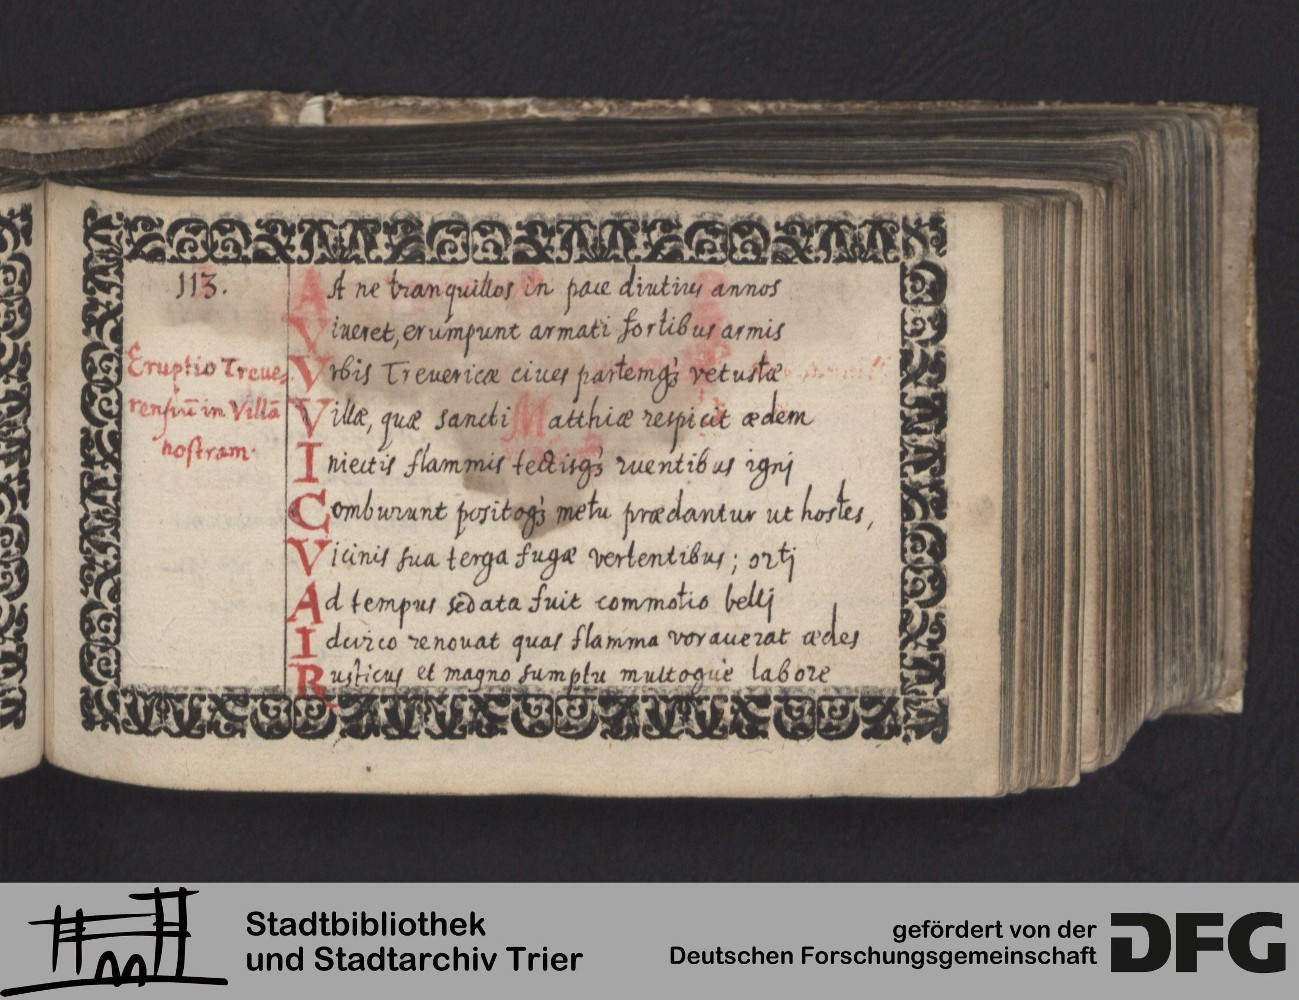 113.
Eruptio Treue,
rensiū in Villā
nostram.
At ne tranquillos in pace diutius annos
Viueret, erumpunt armati fortibus armis
Vrbis Treuericæ ciues partemqʒ vetustæ
Villæ, quæ sancti Matthiæ respicit ædem
Iniectis flammis tectisqʒ ruentibus ignj
Comburunt positoqʒ metu prædantur ut hostes,
Vicinis sua terga fugæ vertentibus; ortj
Ad tempus sedata fuit commotio bellj
Idcirco renouat quas flamma vorauerat ædes
Rusticus et magno sumptu multoquè labore
Stadtbibliothek
und Stadtarchiv Trier
gefördert von der
Deutschen Forschungsgemeinschaft
DFG